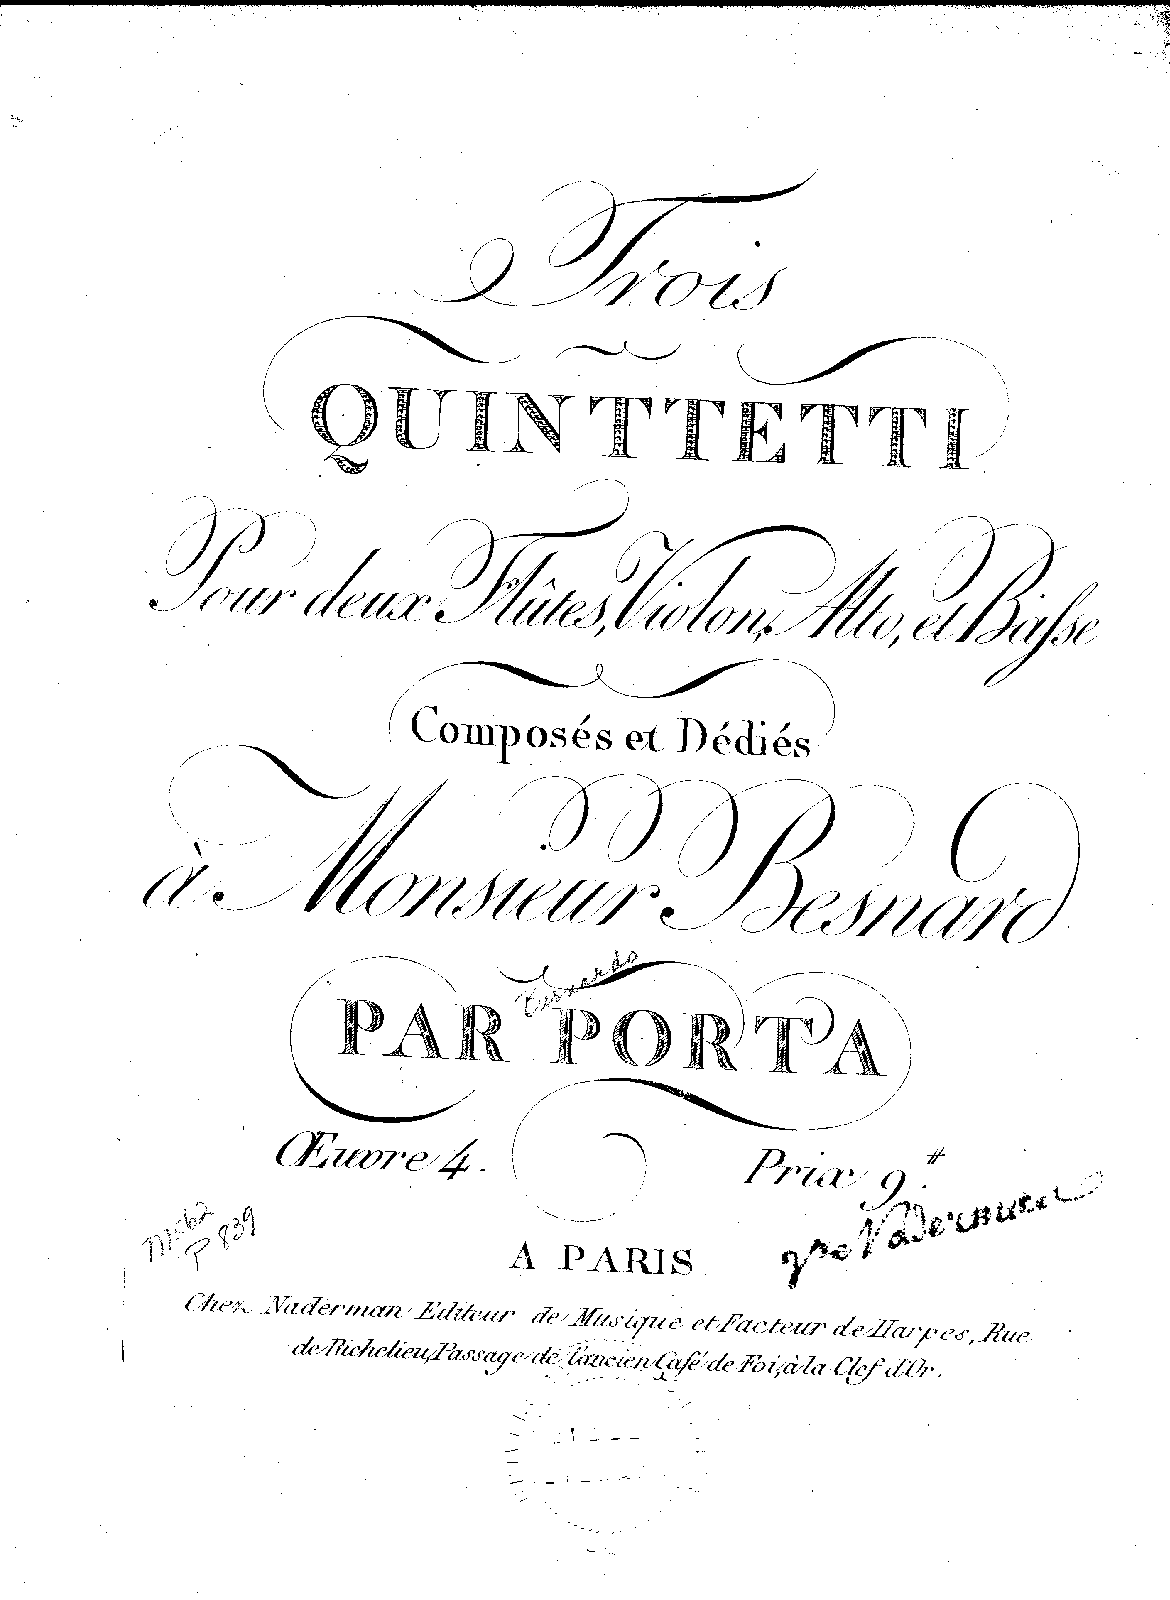 Trois
QUINTTETTI
Pour deux Flûtes, Violon, Alto, et Baſse
Composés et Dédiés
à Monsieur Besnard
Bernardo
PAR PORTA
Œuvre 4. Prix 9.#
M362
P 839
A PARIS
Naderman
Chez Naderman Editeur de Musique et Facteur de Harpes, Rue
de Richelieu, Passage de l'ancien Café de Foi, à la Clef d'Or.